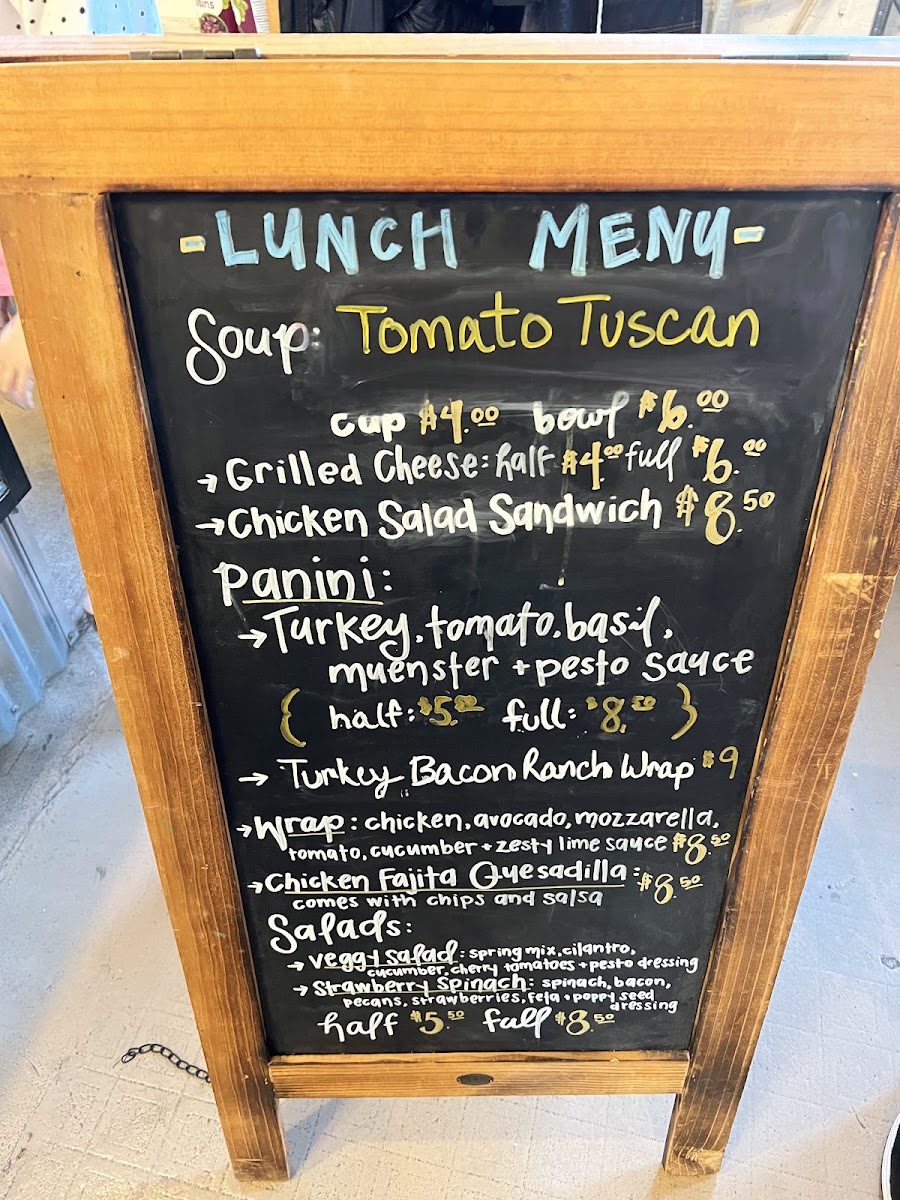 -LUNCH MENU-
Soup: Tomato Tuscan
cup $4.00 bowl $6.00
→ Grilled Cheese: half $4.00 full $6.00
→ Chicken Salad Sandwich $8.50
Panini:
→ Turkey, tomato, basil,
muenster + pesto sauce
( half: $5.50 full: $8.50 )
→ Turkey Bacon Ranch Wrap $9
→ Wrap: chicken, avocado, mozzarella,
tomato, cucumber + zesty lime sauce $8.50
→ Chicken Fajita Quesadilla: $8.50
comes with chips and salsa
Salads:
→ Veggy Salad: spring mix, cilantro,
cucumber, cherry tomatoes + pesto dressing
→ Strawberry Spinach: spinach, bacon,
pecans, strawberries, feta + poppy seed
dressing
half $5.50 full $8.50